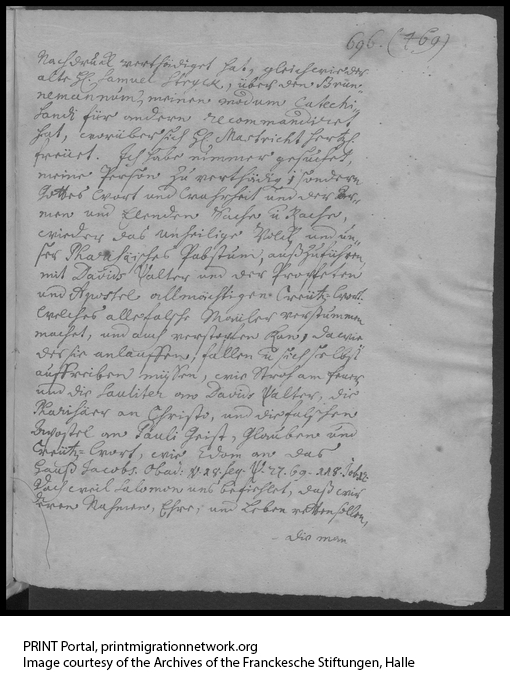 696. (769)
Nachdruck vertheidiget hat, gleich wie der
alte H. Samuel Stryck, über den Brun-
nemannum, meinen modum Catechi-
sandi für andern recommandiret
hat, worüber sich H. Mastricht hertzl.
freuet. Ich habe nimmer gesuchet,
meine Person zu vertheidig. sondern
Gottes Wort und Wahrheit und der Ar-
men und Elenden Sache u. Rache,
wieder das unheilige Volck und un-
ser Pabstum, außzuführen
mit Davids Psalter und der Propheten
und Apostel allmächtigen Creutz-Wort.
Welches alle falsche Mäuler verstummen
machet, und auch verstopfen kan,
der sie anlauffen, fallen u. sich selbst
auffreiben müssen, wie Stroh am Feuer
und die an Davids Psalter, die
Pharisäer an Christo, und die falschen
Apostel an Pauli Geist, Glauben und
Creutz-Wort, wie Edom an das
Hauß Jacobs. Obad: v. 18. seq.
Doch weil Salomon uns befiehlet, daß wir
deren Nahmen, Ehre, und Leben retten sollen,
- die man
PRINT Portal, printmigrationnetwork.org
Image courtesy of the Archives of the Franckesche Stiftungen, Halle